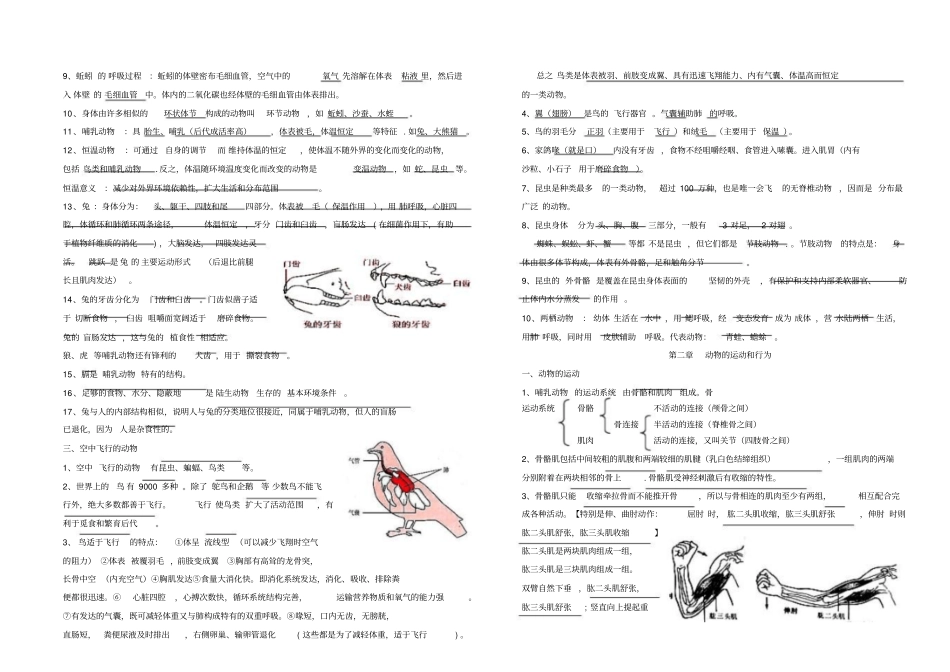 9、蚯蚓 的 呼吸过程 : 蚯蚓的体壁密布毛细血管，空气中的 氧气 先溶解在体表 粘液 里，然后进
入 体壁 的 毛细血管 中。体内的二氧化碳也经体壁的毛细血管由体表排出。
10、身体由许多相似的 环状体节 构成的动物叫 环节动物 ，如 蚯蚓、沙蚕、水蛭 。
11、哺乳动物 : 具 胎生、哺乳（后代成活率高） ，体表被毛，体温恒定 等特征 . 如兔、大熊猫 。
12、恒温动物 : 可通过 自身的调节 而 维持体温的恒定 ，使体温不随外界的变化而变化的动物，
包括 鸟类和哺乳动物 . 反之，体温随环境温度变化而改变的动物是 变温动物 ，如 蛇、昆虫 等。
恒温意义 : 减少对外界环境依赖性，扩大生活和分布范围 。
13、兔 : 身体分为: 头、躯干、四肢和尾 四部分，体表被 毛（ 保温作用 ），用 肺呼吸，心脏四
腔，体循环和肺循环两条途径， 体温恒定 ，牙分 门齿和臼齿 ，盲肠发达（ 在细菌作用下，有助
于植物纤维质的消化 ) ，大脑发达， 四肢发达灵
活。 跳跃 是 兔 的 主要运动形式 （后退比前腿
长且肌肉发达） 。
14、兔的牙齿分化为 门齿和臼齿 ，门齿似凿子适
于 切断食物 ， 臼齿 咀嚼面宽阔适于 磨碎食物。
兔的 盲肠发达 ，这与兔的 植食性 相适应。
狼、虎 等哺乳动物还有锋利的 犬齿 ，用于 撕裂食物 。
15、膈是 哺乳动物 特有的结构。
16、足够的食物、水分、隐蔽地 是 陆生动物 生存的 基本环境条件 。
17、兔与人的内部结构相似，说明人与兔的分类地位很接近，同属于哺乳动物，但人的盲肠
已退化，因为 人是杂食性的。
三、空中飞行的动物
1、空中 飞行的动物 有昆虫、蝙蝠、鸟类 等。
2、世界上的 鸟 有 9000 多种 。除了 鸵鸟和企鹅 等 少数鸟不能飞
行外，绝大多数都善于飞行。 飞行 使鸟类 扩大了活动范围 ，有
利于觅食和繁育后代 。
3、 鸟适于飞行 的特点: ①体呈 流线型 （可以减少飞翔时空气
的阻力） ②体表 被覆羽毛 ，前肢变成翼 ③胸部有高耸的龙骨突，
长骨中空 （内充空气）④胸肌发达⑤食量大消化快，即消化系统发达，消化、吸收、排除粪
便都很迅速。⑥ 心脏四腔 ，心搏次数快，循环系统结构完善， 运输营养物质和氧气的能力强 。
⑦有发达的气囊，既可减轻体重又与肺构成特有的双重呼吸。⑧喙短，口内无齿，无膀胱，
直肠短， 粪便尿液及时排出 ，右侧卵巢、输卵管退化 ( 这些都是为了减轻体重，适于飞行 ) 。
门齿
臼齿
兔的牙齿
门齿
犬齿
臼齿
狼的牙齿
气管
肺
气囊
总之 鸟类是体表被羽、前肢变成翼、具有迅速飞翔能力、内有气囊、体温高而恒定
的一类动物。
4、翼（翅膀） 是鸟的 飞行器官 。气囊辅助肺 的呼吸。
5、鸟的羽毛分 正羽（主要用于 飞行 ）和绒毛 （主要用于 保温 ）。
6、家鸽喙（就是口） 内没有牙齿 ，食物不经咀嚼经咽、食管进入嗉囊。进入肌胃（内有
沙粒、小石子 用于磨碎食物 ）。
7、昆虫是种类最多 的一类动物， 超过 100 万种，也是唯一会飞 的无脊椎动物 ，因而是 分布最
广泛 的动物。
8、昆虫身体 分为 头、胸、腹 三部分，一般有 3 对足， 2 对翅 。
蜘蛛、蜈蚣、虾、蟹 等都 不是昆虫 ，但它们都是 节肢动物 。节肢动物 的特点是: 身
体由很多体节构成，体表有外骨骼，足和触角分节 。
9、昆虫的 外骨骼 是覆盖在昆虫身体表面的 坚韧的外壳 ，有保护和支持内部柔软器官、 防
止体内水分蒸发 的作用 。
10、两栖动物 : 幼体 生活在 水中 ，用 鳃呼吸，经 变态发育 成为 成体 ，营 水陆两栖 生活，
用肺 呼吸，同时用 皮肤辅助 呼吸。代表动物: 青蛙、蟾蜍 。
第二章 动物的运动和行为
一、动物的运动
1、哺乳动物 的运动系统 由骨骼和肌肉 组成。骨
运动系统 骨骼 不活动的连接（颅骨之间）
骨连接 半活动的连接（脊椎骨之间）
肌肉 活动的连接，又叫关节（四肢骨之间）
2、骨骼肌包括中间较粗的肌腹和两端较细的肌腱（乳白色结缔组织） ，一组肌肉的两端
分别附着在两块相邻的骨上 . 骨骼肌受神经刺激后有收缩的特性。
3、骨骼肌只能 收缩牵拉骨而不能推开骨 ，所以与骨相连的肌肉至少有两组， 相互配合完
成各种活动。【特别是伸、曲肘动作: 屈肘 时， 肱二头肌收缩，肱三头肌舒张 ，伸肘 时则
肱二头肌舒张，肱三头肌收缩 】
肱二头肌是两块肌肉组成一组，
肱三头肌是三块肌肉组成一组。
双臂自然下垂 ，肱二头肌舒张，
肱三头肌舒张 ; 竖直向上提起重
屈肘
肱三头肌
伸肘
肱二头肌